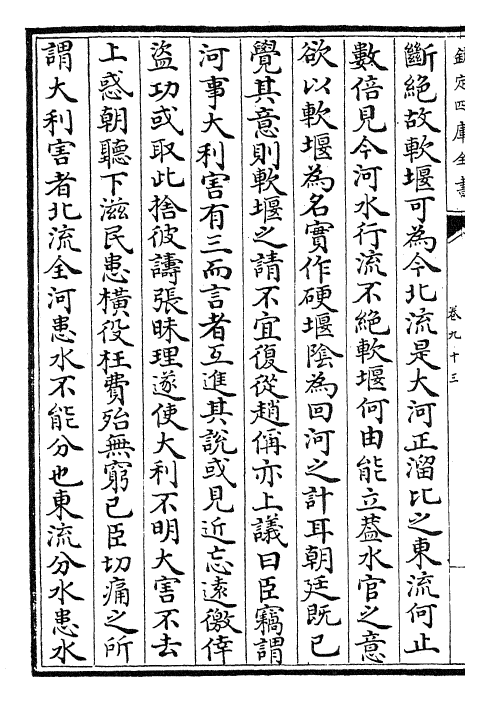 欽定四庫全書
卷九十三
斷絶故軟堰可為今北流是大河正溜比之東流何止
數倍見今河水行流不絶軟堰何由能立葢水官之意
欲以軟堰為名實作硬堰隂為回河之計耳朝廷既已
覺其意則軟堰之請不宜復從趙偁亦上議曰臣竊謂
河事大利害有三而言者互進其説或見近忘遠徼倖
盜功或取此捨彼譸張昧理遂使大利不明大害不去
上惑朝聽下滋民患横役枉費殆無窮已臣切痛之所
謂大利害者北流全河患水不能分也東流分水患水